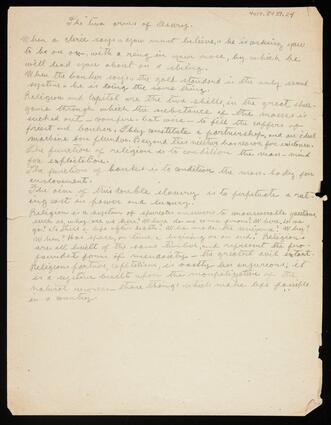 The two arms of slavery.
When a cleric says, "you must believe," he is asking you
to be an ox, with a ring in your nose, by which he
will lead you about on a string.
When the banker says the gold standard is the only sound
system, he is doing the same thing.
Religion and capital are the two shells in the great shell-
game through which the substance of the masses is
sucked out – war or no war – to fill the coffers of
priest and banker. They constitute a partnership, and an ideal
machine for plunder. Beyond this neither has reason for existence.
The function of religion is to condition the man-mind
for exploitation.
The function of bankers is to condition the man-body for
enslavement.
The aim of this double slavery is to perpetuate a rul-
ing cast in power and luxury.
Religion is a system of spurious answers to unanswerable questions,
such as why are we here? Where do we come from? Where do we
go? Is there a life after death? Who made the universe? Why?
When? Has space, or time a beginning or an end? Religions
are all built of the same timber, and represent the pro-
foundest forms of mendacity – the greatest evil extant.
Religion's partner, capitalism, is exactly as injurious; it
is a system built upon the monopolization of the
natural resources – those things which make life possible
in a country.